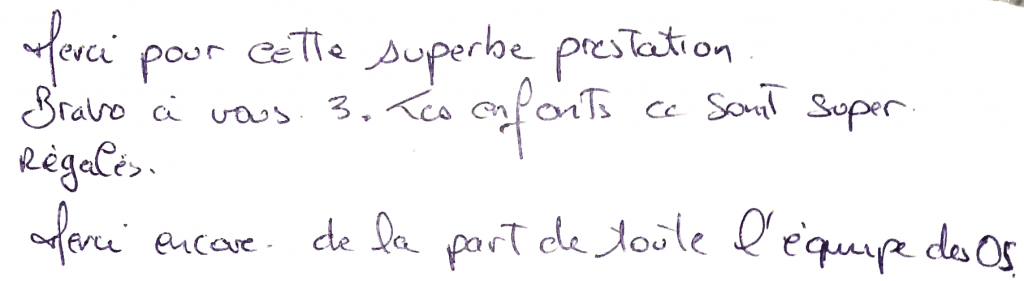 Merci pour cette superbe prestation.
Bravo à vous 3. Les enfants ce sont super
Régalés.
Merci encore. de la part de toute l'équipe des OS.